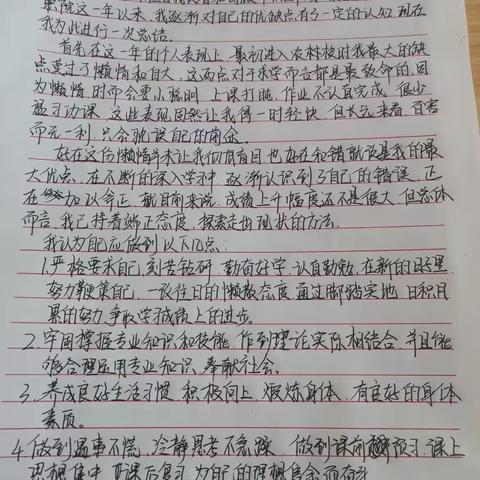 来院这一年以来,我逐渐对自己的优缺点有了一定的认知,现在
我为此进行一次总结。
首先在这一年的个人表现上,最初进入农林校时我最大的缺
点莫过于懒惰和自大,这两点对于求学而言都是最致命的,因
为懒惰,时而会耍小聪明,上课打盹,作业不认真完成,很少
温习功课,这些表现固然让我得一时轻快,但长远来看,百害
而无一利,只会耽误自己的前途。
好在这份懒惰并未让我 盲目 也好在知错就改是我的最
大优点,在不断的深入学习中,逐渐认识到了自己的错误,正
在 加以纠正,就目前来说,成绩上升幅度还不是很大,但总体
而言,我已持着端正态度,探索走出现状的方法。
我认为自己应做到以下几点:
1.严格要求自己,刻苦钻研,勤奋好学,认真勤勉,在新的日子里,
努力鞭策自己,一改往日的懒散态度,通过脚踏实地,日积月
累的努力,争取学习成绩上的进步。
2.牢固掌握专业知识和技能,作到理论实际相结合,并且能
够合理运用专业知识,奉献社会。
3.养成良好生活习惯,积极向上,煅炼身体,有良好的身体
素质。
4.做到遇事不慌,冷静思考不急躁,做到课前预习,课上
思想集中, 课后复习,为自己的理想信念而奋斗